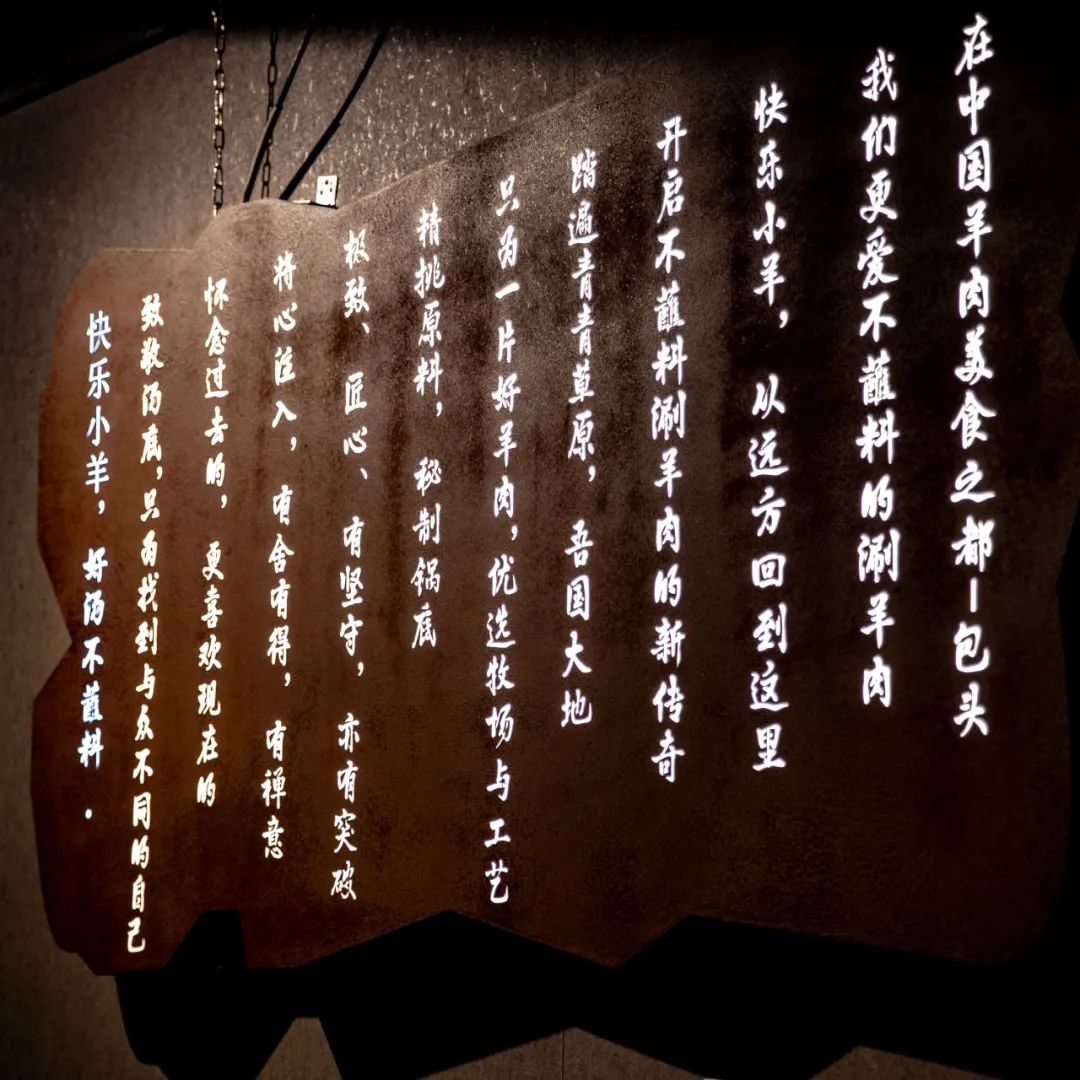 在中国羊肉美食之都—包头
我们更爱不蘸料的涮羊肉
快乐小羊，从远方回到这里
开启不蘸料涮羊肉的新传奇
踏遍青青草原，吾国大地
只为一片好羊肉，优选牧场与工艺
精挑原料，秘制锅底
极致、匠心、有坚守，亦有突破
将心注入，有舍有得，有禅意
怀念过去的，更喜欢现在的
致敬汤底，只为找到与众不同的自己
快乐小羊，好汤不蘸料.